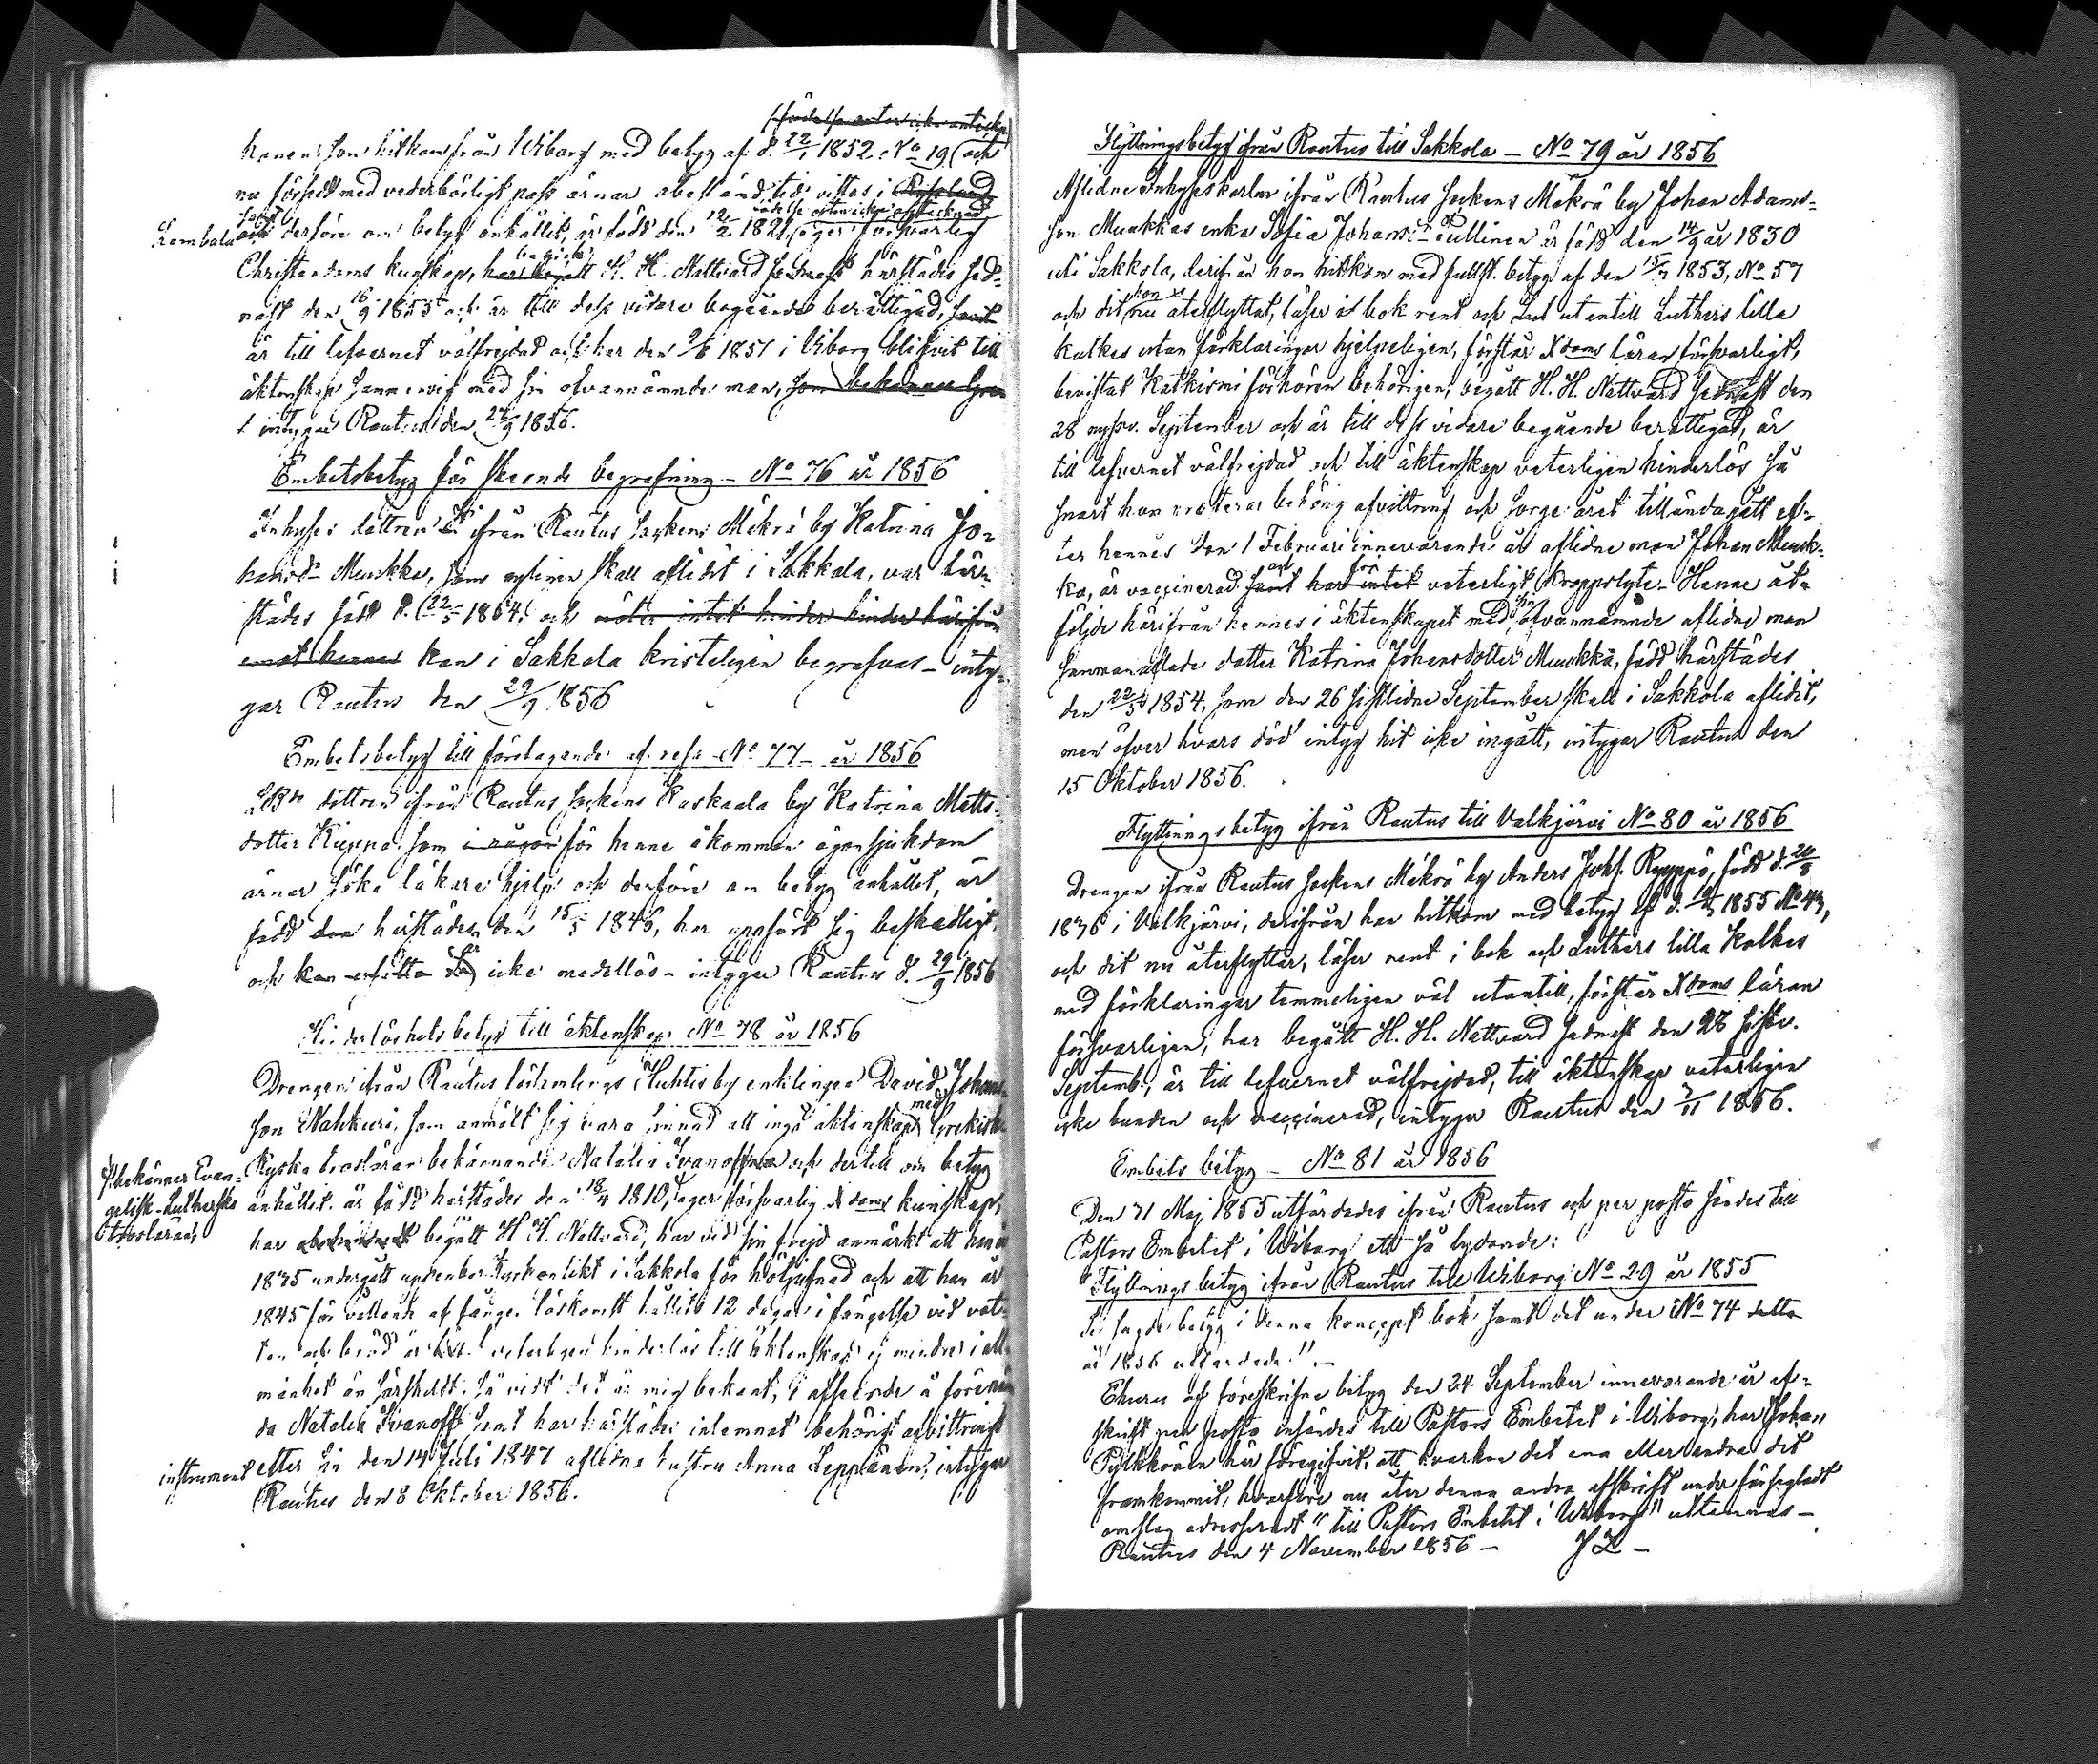 födelseorten icke anteckn.
honen som hitkom från Wiborg med betyg af d. 22/1 1852 No 19 och
nu försedt med vederbörligt pass ärnar obestämd tid vistas i Ryssland
födelse orten icke antecknad
Sembala samt och derföre om betyg anhållit, är född den 12/2 1821, eger försvarlig
begått
Christendoms kunskap, har begått H. H. Nattvard sednast härstädes sed-
nast den 16/9 1855 och är till dess vidare begående berättigad, samt
är till lefvernet välfrejdad och har den 9/6 1851 i Wiborg blifvit till
äktenskap sammanvigd med sin ofvannämnde man, som bekänner
intygar Rautus den 24/9 1856.
Embetsbetyg för skeende begrafning - No 76 år 1856
Inhyses dottren ifrån Rautus Sockens Mäkrä by Katrina Jo-
hansd. Muukka, som nyligen skall aflidit i Sakkola, var här-
städes född d. 22/5 1854, och möter intet hinder hinder härifrån
emot hennes kan i Sakkola kristeligen begrafvas - inty-
gar Rautus den 29/9 1856
Embetsbetyg till företagande af resa No 77 - år 1856
dottren ifrån Rautus Sockens Kaskaala by Katrina Matts-
dotter Kiuppa som i någon för henne åkommen ögonsjukdom
ärnar söka läkare hjelp och derföre om betyg anhållit, är
född den härstädes den 15/5 1846, har uppfört sig beskedligt,
är
och kan erfitta icke medellös - intygar Rautus d. 29/9 1856
Hinderlöshets betyg till äktenskap No 78 år 1856
Drengen ifrån Rautus Huhtis by enklingen David Johans-
med
son Nahkuri, som anmält sig vara sinnad att ingå äktenskap Grekisk-
Ryska trosläran bekännande Natalia Ivanoffna och dertill om betyg
bekänner Evan-
gelisk-Lutherska
trosläran,
anhållit, är född härstädes den 18/4 1810, eger försvarlig Xdoms kunskap,
har begått H. H. Nattvard, har vid sin frejd anmärkt att han år
1835 undergått uppenbar kyrkoplikt i Sakkola för hölsgifnad och att han år
1845 för vållande af fånges löskomst hållits 12 dagar i fängelse vid vat-
ten och bröd är veterligen hinderlös till äktenskap ej mindre i all-
mänhet än särskildt, så vidt det är mig bekant, i afseende å förenämn-
da Natalia Ivanoff samt har härstädes inlemnat behörigt afvittrings
instrument efter sin den 14 Juli 1847 aflidna hustru Anna Leppänen, intygar
Rautus den 8 Oktober 1856.
Flyttningsbetyg ifrån Rautus till Sakkola - No 79 år 1856
Aflidne Inhyseskarlen ifrån Rautus Sockens Mäkrä by Johan Adams-
son Muukkas enka Sofia Johansd. Pullinen är född den 14/9 år 1830
uti Sakkola, derifrån hon hitkom med fullst. betyg af den 15/7 1853, No 57
hon
och dit nu återflyttat, läser i bok rent och utantill Luthers lilla
Katkes utan förklaringar hjelpeligen, förstår Xdoms läran försvarligt,
bevistat Katkismi förhören behörigen, begått H. H. Nattvard sednast den
28 nyssv. September och är till dess vidare begående berättigad, är
till lefvernet välfrejdad och till äktenskap veterligen hinderlös så
snart hon presterar behörig afvittring och sorge året tilländagått ef-
ter hennes den 1 Februari innevarande år aflidne man Johan Muuk-
och för
ka, är vaccinerad samt har intet veterligt kroppslyte. Henne åt-
sin
följde härifrån hennes i äktenskapet med ofvannämnde aflidne man
sammanaflade dotter Katrina Johansdotter Muukka, född härstädes
den 22/5 1854, som den 26 sistlidne September skall i Sakkola aflidit,
men öfver hvars död intyg hit icke ingått, intygar Rautus den
15 Oktober 1856.
Flyttningsbetyg ifrån Rautus till Valkjärvi No 80 år 1856
Drengen ifrån Rautus Sockens Mäkrä by Anders Johs. Ryyppö, född d. 20/8
1836 i Valkjärvi, derifrån han hitkom med betyg af d. 1855 No 43,
och dit nu återflyttar, läser rent i bok och Luthers lilla Katkes
med förklaringar temmeligen väl utantill, förstår Xdoms läran
försvarligen, har begått H. H. Nattvard sednast den 28 sistv.
Septemb., är till lefvernet välfrejdad, till äktenskap veterligen
icke bunden och vaccinerad, intygar Rautus den 2/11 1856.
Embets betyg - No 81 år 1856
Den 31 Maj 1855 utfärdades ifrån Rautus och per posto sändes till
Pastors Embetet i Wiborg ett så lydande:
"Flyttnings betyg ifrån Rautus till Wiborg No 29 år 1855
Se sagde betyg i denna koncept bok samt det under No 74 detta
år 1856 utfärdade." -
Ehuru af föreskrifne betyg den 24 September innevarande år af-
skrift per posto insändes till Pastors Embetet i Wiborg, har Johan
Pylkkönen här föregifvit, att hvarken det ena eller andra dit
framkommit, hvarföre nu åter denna andra afskrift under förseglat
omslag adresseradt "till Pastors Embetet i Wiborg" uttemnas -
Rautus den 4 November 1856 -